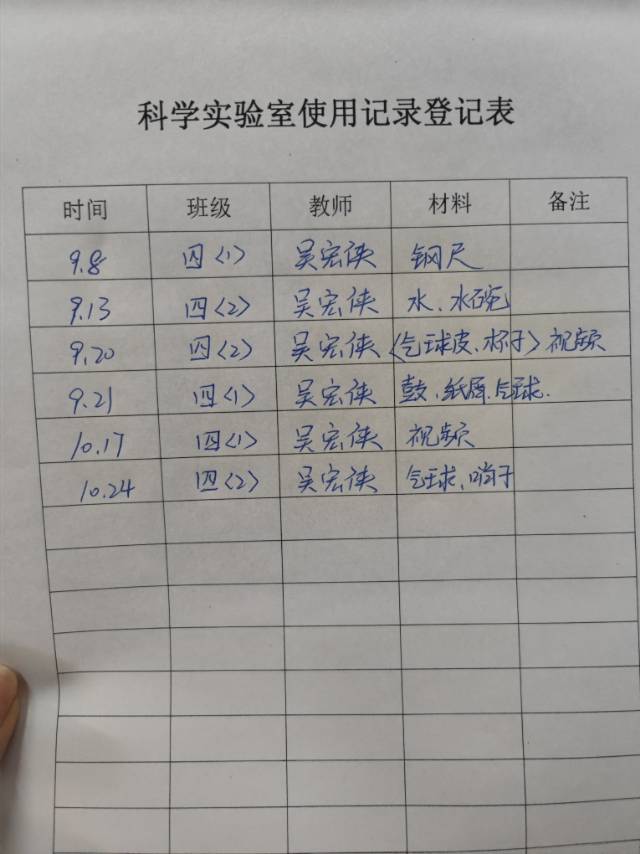 科学实验室使用记录登记表
时间 班级 教师 材料 备注
9.8 四〈1〉 吴宏侠 钢尺
9.13 四〈2〉 吴宏侠 水、水碗
9.20 四〈2〉 吴宏侠 〈气球皮、杯子〉视频
9.21 四〈1〉 吴宏侠 鼓、纸屑、气球.
10.17 四〈1〉 吴宏侠 视频
10.24 四〈2〉 吴宏侠 气球、哨子